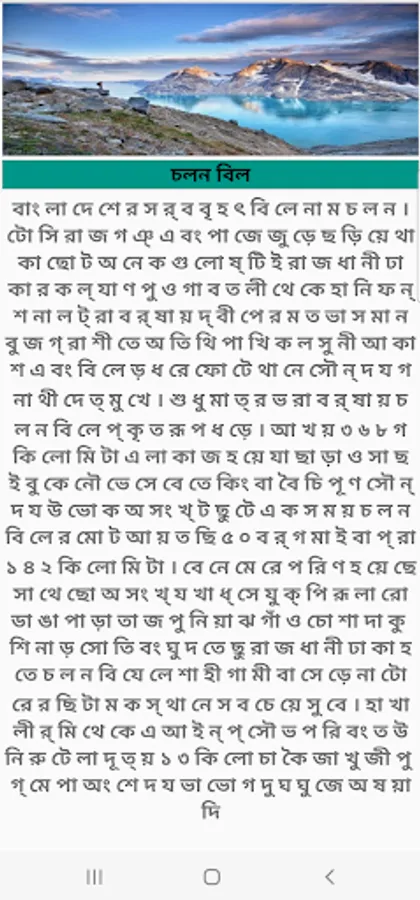 চলন বিল
বাং লা দে শে র স র্ ব বৃ হ ৎ বি লে না ম চ ল ন ।
টো সি রা জ গ ঞ্ এ বং পা জে জু ড়ে ছ ড়ি য়ে থা
কা ছো ট অ নে ক গু লো ষ্ টি ই রা জ ধা নী ঢা
কা র ক ল্ যা ণ পু ও গা ব ত লী থে কে হা নি ফ ন্
শ না ল ট্ রা ব র্ ষা য় দ্ বী পে র ম ত ভা স মা ন
বু জ গ্ রা শী তে অ তি থি পা খি ক ল সু নী আ কা
শ এ বং বি লে ড় ধ রে ফো টে থা নে সৌ ন্ দ য গ
না থী দে ত্ মু খে । শু ধু মা ত্ র ভ রা ব র্ ষা য় চ
ল ন বি লে প্ কৃ ত রূ প ধ ড়ে । আ খ য় ৩ ৬ ৮ গ
কি লো মি টা এ লা কা জ হ য়ে যা ছা ড়া ও সা ছ
ই বু কে নৌ ভে সে বে তে কিং বা বৈ চি পূ ণ সৌ ন্
দ য উ ভো ক অ সং খ্ ট ছু টে এ ক স ম য় চ ল ন
বি লে র মো ট আ য় ত ছি ৫ ০ ব র্ গ মা ই বা প্ রা
১ ৪ ২ কি লো মি টা । বে নে মে রে প রি ণ হ য়ে ছে
সা থে ছো অ সং খ্ য খা ধ্ সে যু ক্ পি রূ লা রো
ডা ঙা পা ড়া তা জ পু নি য়া ঝ গাঁ ও চো শা দা কু
শি না ড় সো তি বং ঘু দ তে ছু রা জ ধা নী ঢা কা হ
তে চ ল ন বি যে লে শা হী গা মী বা সে ড়ে না টো
রে র ছি টা ম ক স্ থা নে স ব চে য়ে সু বে । হা খা
লী র্ মি থে কে এ আ ই ন্ প্ সৌ ভ প রি বং ত উ
নি রু টে লা দূ ত্ য় ১ ৩ কি লো চা কৈ জা খু জী পু
গ্ মে পা অং শে দ য ভা ভো গ দু ঘ ঘু জে অ ষ য়া
দি